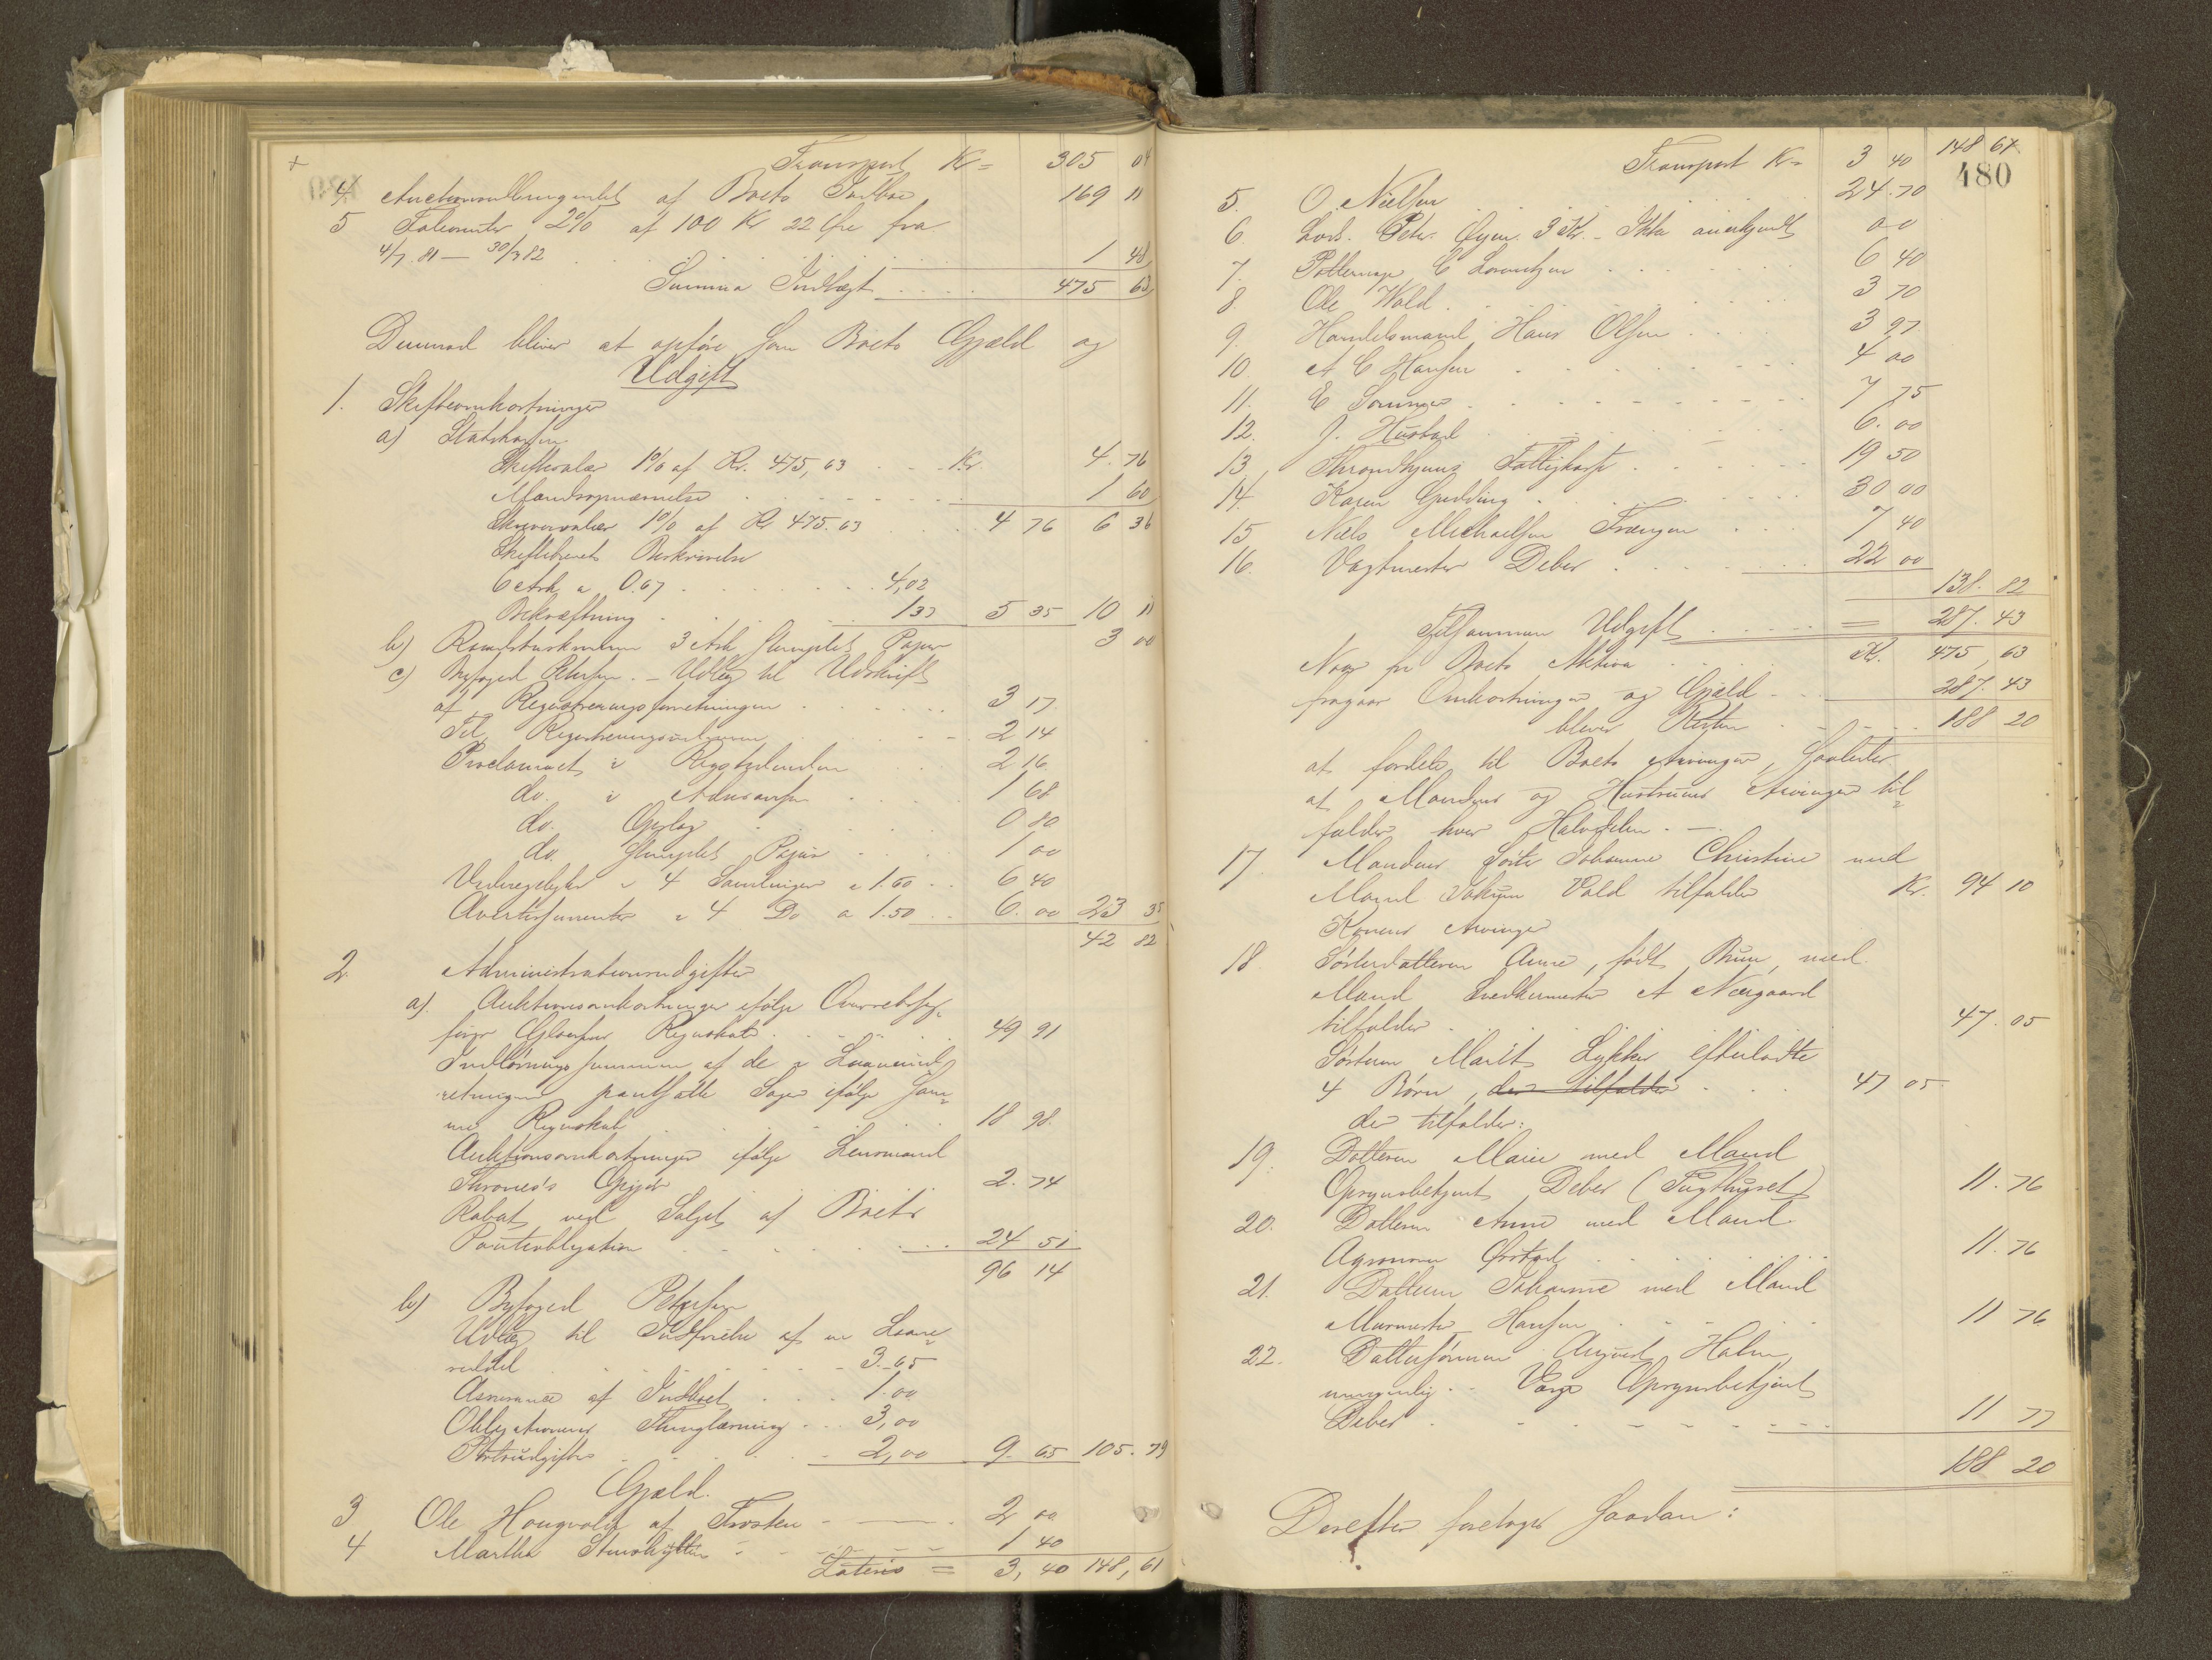 Transport Kr = 305 04
4. Auctionsudbringendet af Boets Indbo 169 11
5 Foliorenter 2% af 100 Kr 22 Øre fra
4/7.81 — 30/3 82 1 48
Summa Indtægt 475 63
Derimod bliver at opføre som Boets Gjæld og
Udgift
1. Skifteomkostninger
a) Statskassen
Skiftesalær 1% af Kr. 475,63 Kr. 4.76
Mandsopnævnelse 1 60
Skriversalær 1% af Kr 475.63 4 76 6 36
Skiftebrevets Beskrivelse
6 Ark a 0.67 4,02
Bekræftning 1 33 5 35 10 11
b) 3 Ark stemplet Papir 3 00
c) Byfoged Petersen. – Udlæg til Udskrift
af Registreringsforretningen 3 17.
Til Registrerings 2 14
Proclamaet i Rigstidenden 2 16
do. i Adresseavisen 1 68
do. Opslag 0 80
do. stemplet Papir 1 00
i 4 Samlinger a 1.60 6 40
Avertissementer i 4 Do a 1.50 6.00 23 35
42 82
2. Administrationsudgifter
a). Auktionsomkostninger ifølge Overretssag-
fører Regnskab 49 91
Indløsningssummen af de i Laaneind-
retningen pantsatte Sager ifølge sam-
me Regnskab 18 98.
Auktionsomkostninger ifølge Lensmand
Opgjør 2.74
Rabat ved Salget af Boets
Panteobligation 24 51
96 14
b) Byfoged Petersen
Udlæg til Indfrielse af en Laane-
seddel 3.65
Assurance af Indboet 1.00
Obligationens Thinglæsning 3,00
Portoudgifter 2,00 9.65 105.79
Gjæld.
3 Ole Hougvold af Frosten 2 00
4 Martha 1 40
Lateris = 3,40 148,61
Transport Kr = 3 40 148 61
480
5. O. Nielsen 24.70
6. Lods. Peter Øyen. 3 Kr. – Ikke anerkjendt 0 0
7. C Lorentzen 6 40
8. Ole Wold 3 70
9. Handelsmand Hans Olsen 3 97
10. A C Hansen 4 00
11. E 7 75
12. J. Hustad 6.00
13 Throndhjems Fattigkasse 19 50
14. Karen Gudding 30 00
15 Niels Michaelsen 7 40
16. Vagtmester Deber 22 00
138.82
Tilsammen Udgift = 287.43
Naar fra Boets Aktiva Kr. 475,63
fragaar Omkostninger og Gjæld 287.43
bliver Resten 188 20
at fordele til Boets Arvinger, saaledes
at Mandens og Hustruens Arvinger til-
falder hver Halvdelen. –
17. Mandens Søster Johanne Christine med
Mand Jokum Vold tilfalder Kr. 94 10
Konens Arvinger
18. Søsterdatteren Anne, født Bruun, med
Mand A Næsgaard
tilfalder 47.05
Søsteren Marit Lykkes efterladte
4 Børn, der tilfalder 47 05
der tilfalder:
19. Datteren Marie med Mand
Opsynsbetjent Deber (Tugthuset) 11.76
20. Datteren Anne med Mand
Agronom Ørstad 11.76
21. Datteren Johanne med Mand
Murmester Hansen 11 76
22. Dattersønnen August Holm,
umyndig. Værge Opsynsbetjent
Deber 11 77
188 20
Derefter foretoges saadan: